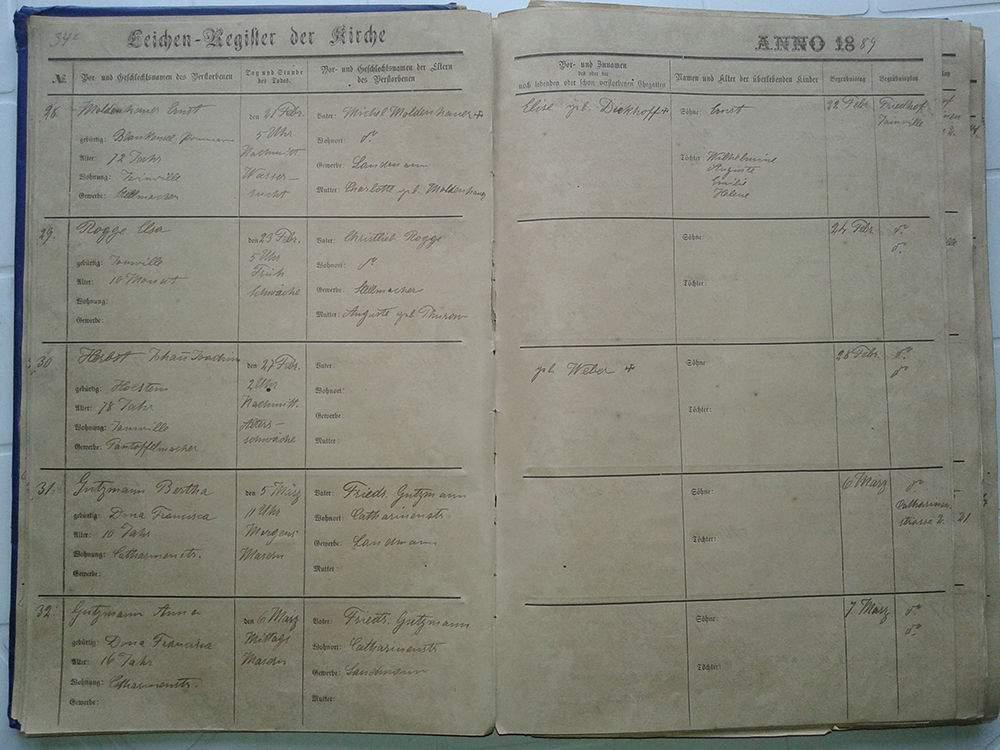 Leichen-Register der Kirche
ANNO 1889
№ Vor- und Geschlechtsnamen des Verstorbenen
Tag und Stunde des Todes.
Vor- und Geschlechtsnamen der Eltern des Verstorbenen
Vor- und Zunamen des oder der noch lebenden oder schon verstorbenen Ehegatten
Namen und Alter der überlebenden Kinder
Begräbnisstag
Begräbnissplatz
28. Moldenhauer Ernst
gebürtig: Blankensee
Alter: 72 Jahr
Wohnung: Joinville
Gewerbe: Stellmacher
den 21 Febr.
5 Uhr
Nachmitt
Wasser-
sucht
Vater: Michel Moldenhauer +
Wohnort: do
Gewerbe: Landmann
Mutter: Charlotte geb. Moldenhauer
Elise geb. Dickhoff +
Söhne: Ernst
Töchter: Wilhelmine
Auguste
Emilie
Helene
22 Febr.
Friedhof
Joinville
29. Rogge Elsa
gebürtig: Joinville
Alter: 10 Monat
Wohnung:
Gewerbe:
den 23 Febr.
5 Uhr
Früh
Schwäche
Vater: Christlieb Rogge
Wohnort: do
Gewerbe: Stellmacher
Mutter: Auguste geb. Thurow
Söhne:
Töchter:
24 Febr.
do
do
30 Herbst Johann Joachim
gebürtig: Holstein
Alter: 78 Jahr
Wohnung: Joinville
Gewerbe: Pantoffelmacher
den 27 Febr.
2 Uhr
Nachmitt.
Alters-
schwäche
Vater:
Wohnort:
Gewerbe:
Mutter:
geb. Weber +
Söhne
Töchter:
28 Febr.
do
do
31. Gutzmann Bertha
gebürtig: Dona Francisca
Alter: 10 Jahr
Wohnung: Catharinenstr.
Gewerbe:
den 5 März
11 Uhr
Morgens
Masern
Vater: Friedr. Gutzmann
Wohnort: Catharinenstr.
Gewerbe: Landmann
Mutter:
Söhne:
Töchter:
6 März
do
Catharinen-
strasse
32. Gutzmann Anna
gebürtig: Dona Francisca
Alter: 16 Jahr
Wohnung: Catharinenstr.
Gewerbe:
den 6 März
Mittags
Masern
Vater: Friedr. Gutzmann
Wohnort: Catharinenstr
Gewerbe: Landmann
Mutter:
Söhne:
Töchter:
7 März
do
do